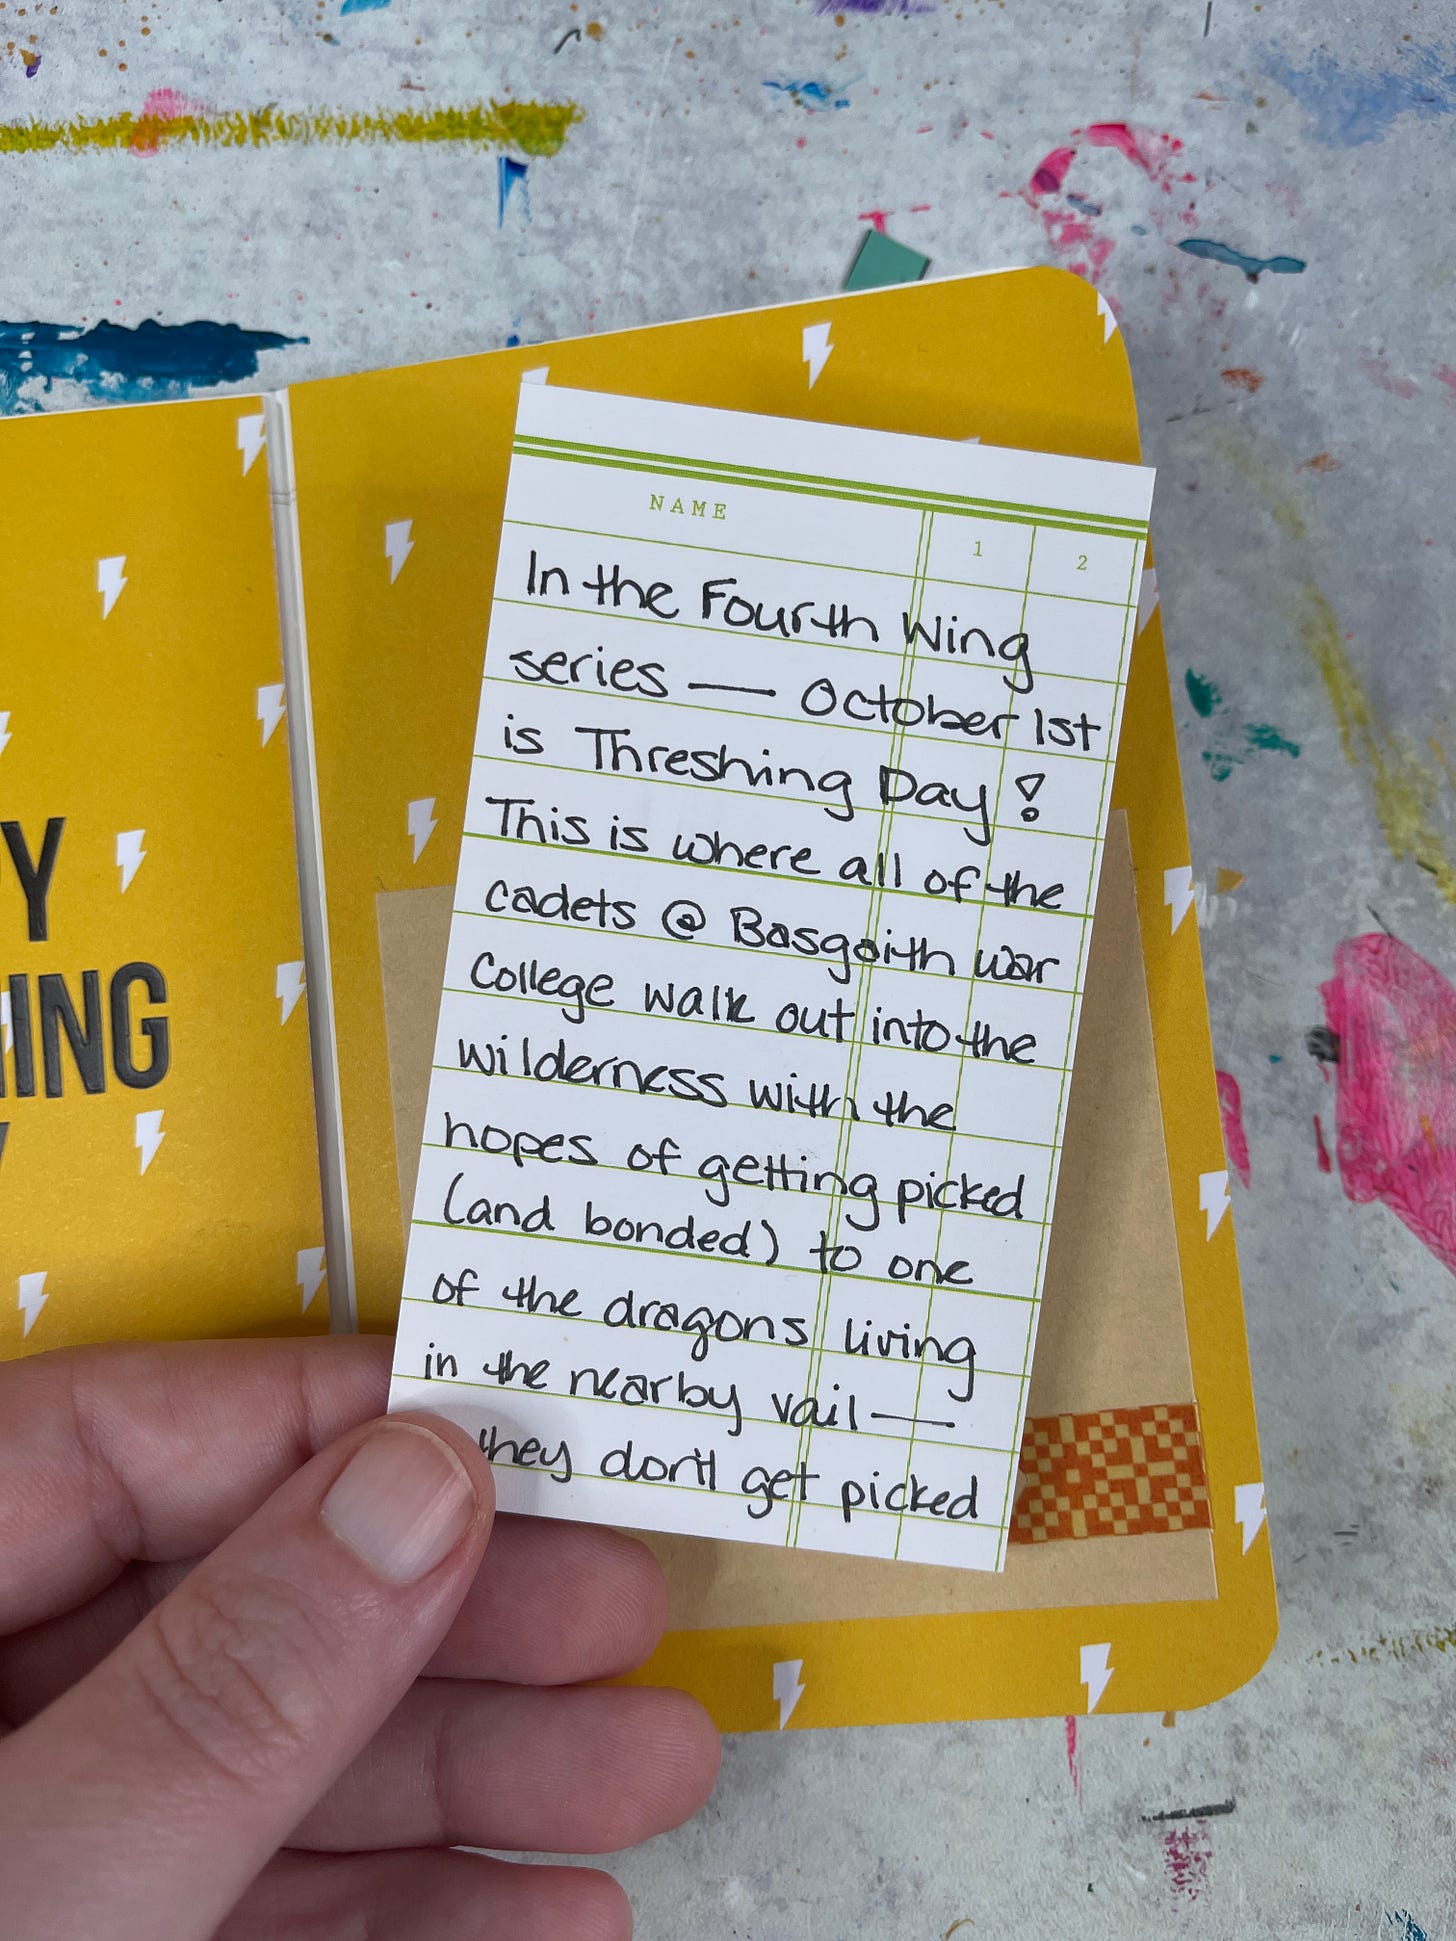 Y
ING
NAME 1 2
In the Fourth Wing
series — October 1st
is Threshing Day!
This is where all of the
cadets @ Basgaith war
College walk out into the
wilderness with the
hopes of getting picked
(and bonded) to one
of the dragons living
in the nearby vail —
they don't get picked